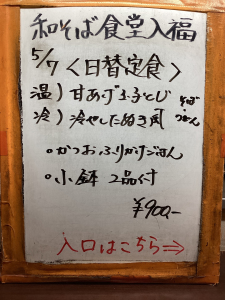 和そば食堂入福
5/7 〈日替定食〉
温）甘あげ玉子とじ そば
冷）冷やしたぬき風 うどん
・かつおふりかけごはん
・小鉢 2品付
¥900-
入口はこちら⇒